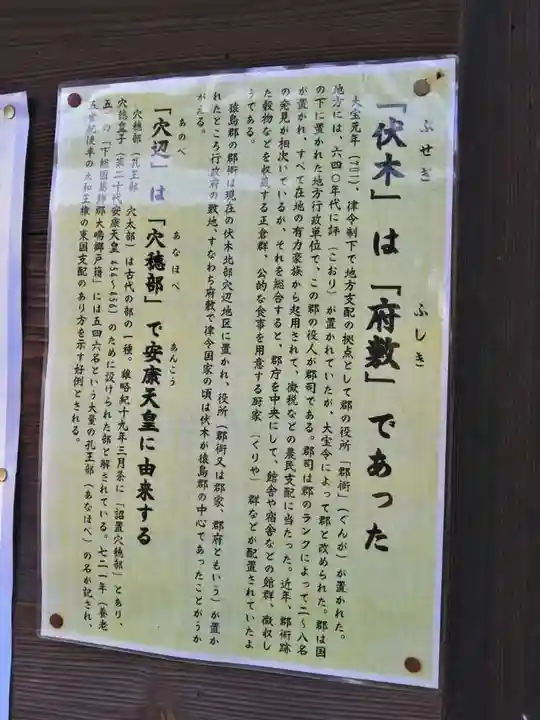 ふせぎ ふしき
「伏木」は「府敷」であった
大宝元年(701)、律令制下で地方支配の拠点として郡の役所「郡衙」(ぐんが)が置かれた。
地方には、六四〇年代に評(こおり)が置かれていたが、大宝令によって郡と改められた。郡は国
の下に置かれた地方行政単位で、この郡の役人が郡司である。郡司は郡のランクによって二〜八名
が置かれ、すべて在地の有力豪族から起用されて、徴税などの農民支配に当たった。近年、郡衙跡
の発見が相次いでいるが、それを総合すると、郡庁を中央にして、館舎や宿舎などの館群、徴収し
た穀物などを収蔵する正倉群、公的な食事を用意する厨家(くりや)群などが配置されていたよ
うである。
猿島郡の郡衙は現在の伏木北部穴辺地区に置かれ、役所(郡衙又は郡家、郡府ともいう)が置か
れたところ行政府の敷地、すなわち府敷で律令国家の頃は伏木が猿島郡の中心であったことがうか
がえる。
あのべ あなほべ あんこう
「穴辺」は「穴穂部」で安康天皇に由来する
穴穂部(孔王部 穴太部)は古代の部の一種。雄略紀十九年三月条に「詔置穴穂部」とあり、
穴穂皇子(第二十代安康天皇 454〜456)のために設けられた部と解されている。七二一年(養老
五)の「下総国葛飾郡大嶋郷戸籍」には五四六名という大量の孔王部(あなほべ)の名が記され、
五世紀後半の大和王権の東国支配のあり方を示す好例とされる。